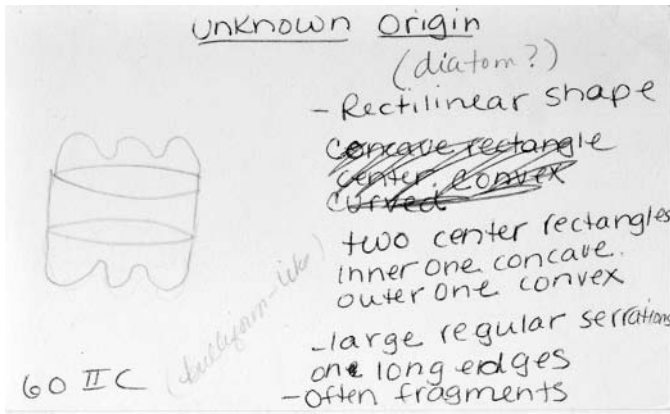 unknown origin
(diatom?)
- Rectilinear shape
concave rectangle
center. convex
curved
two center rectangles
inner one concave.
outer one convex
- large regular serrations
one long edges
- often fragments
(bulliform-like)
60 II C